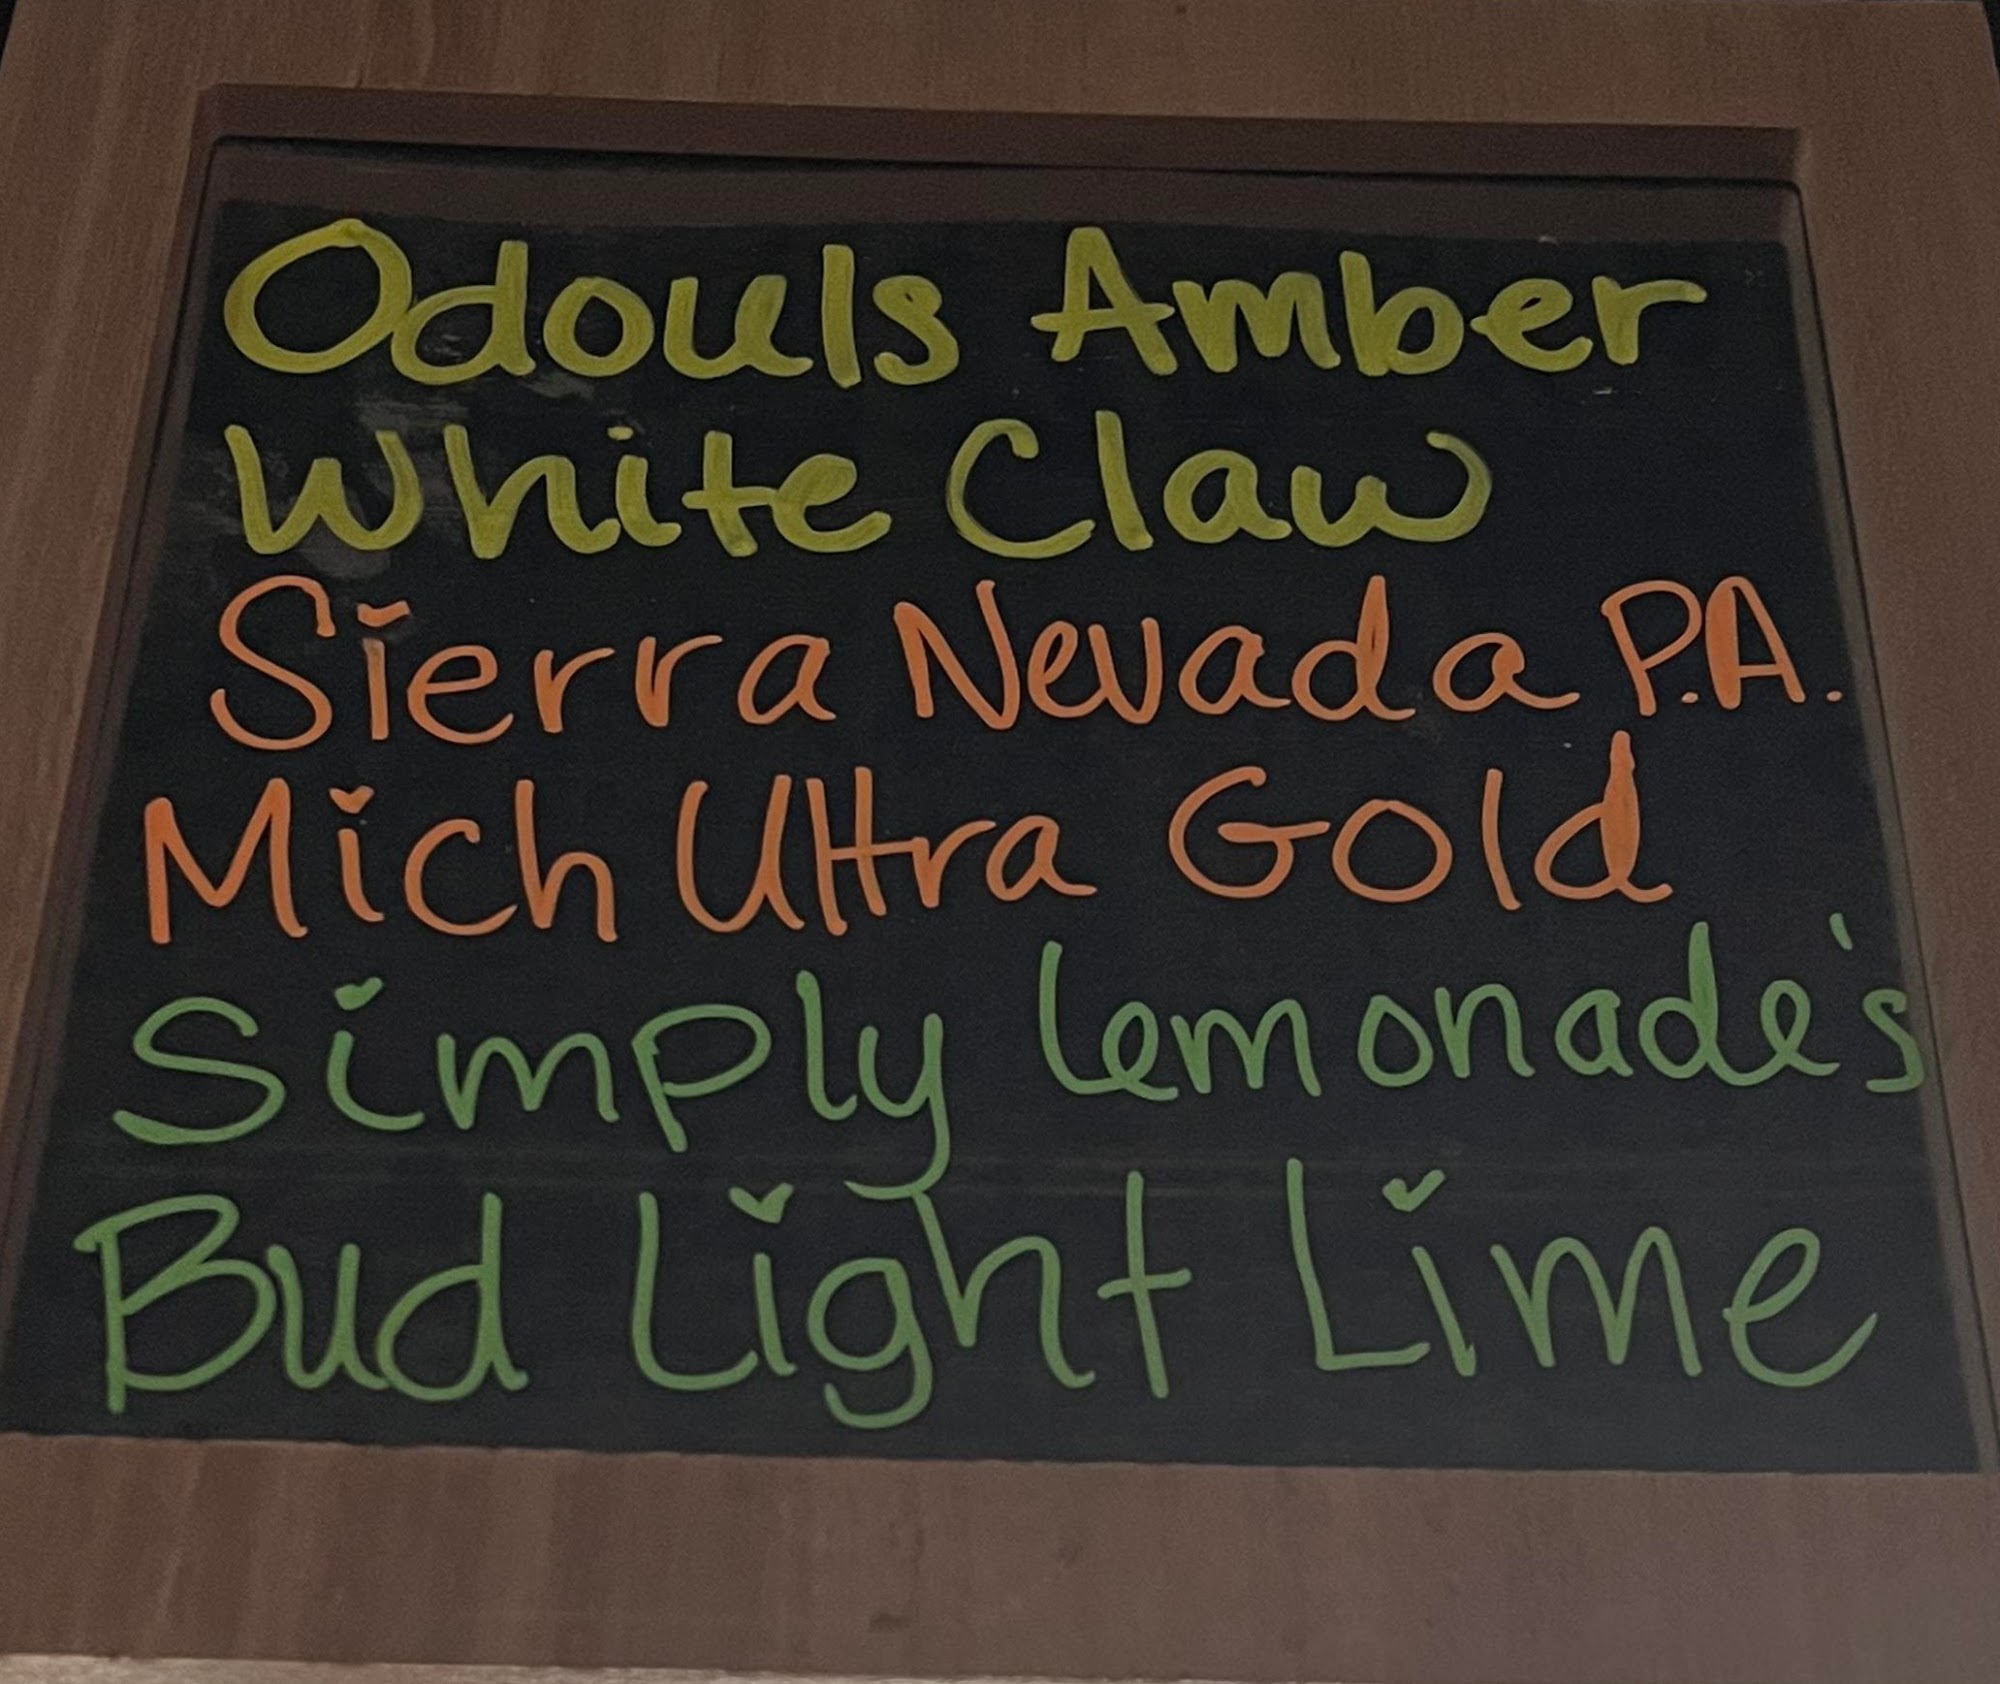 Odouls Amber
White Claw
Sierra Nevada P.A.
Mich Ultra Gold
Simply lemonade's
Bud Light Lime